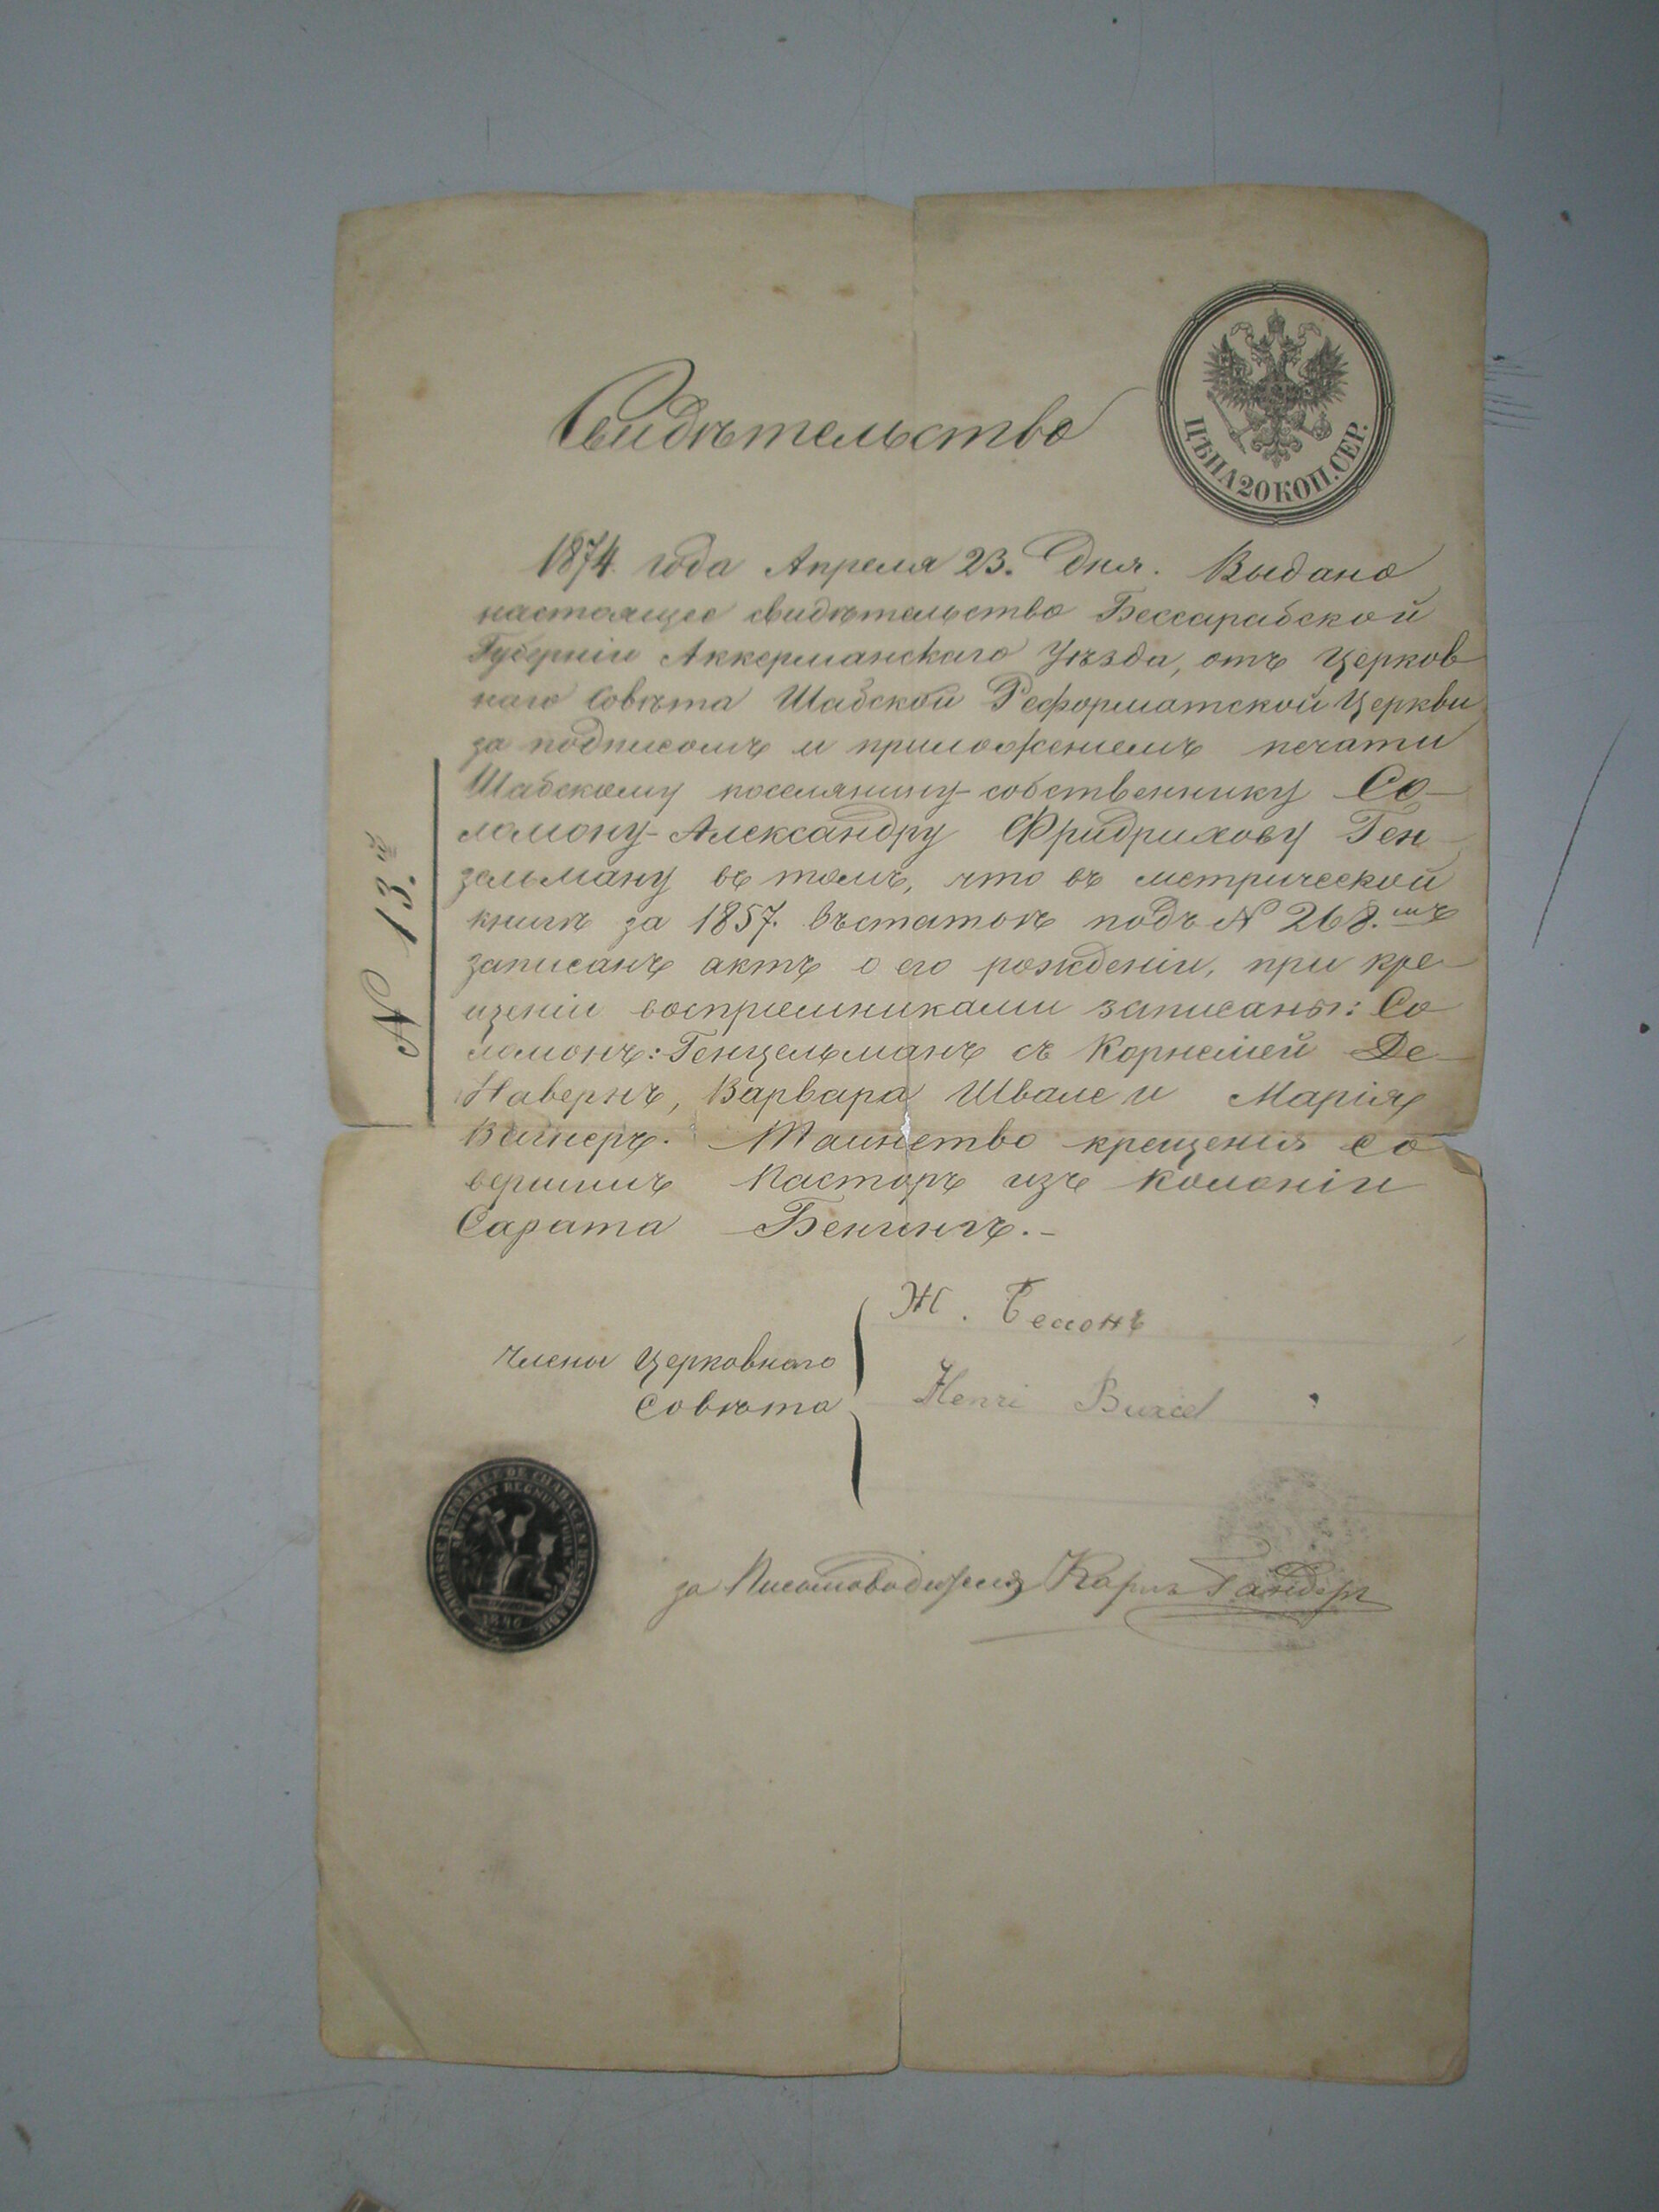 Свидѣтельство
ЦѢНА 20 КОП. СЕР.
1874. года Апреля 23. Дня. Выдано
настоящее свидѣтельство Бессарабской
Губерніи Аккерманскаго Уѣзда, отъ Церков
наго Совѣта Шабской Реформатской Церкви
за подписомъ и приложениемъ печати
Шабскому поселянину-собственнику Со-
ломону-Александру Фридрихову Ген
зельману въ томъ, что въ метрической
книгѣ за 1857. подъ № 268.мъ
записанъ актъ о его рожденіи, при кре-
щеніи воспріемниками записаны: Со
ломонъ: Генцельманъ съ Корнелией Де-
Навернъ, Варвара Швале и Марія
Вагнеръ. Таинство крещенія со
вершилъ Пасторъ изъ Колоніи
Сарата Бенингъ.-
№ 13.й
Члены Церковнаго
Совѣта
Ж. Бесонъ
Henri
за Писмоводителя Карлъ Гандеръ
PAROISSE REFORMEE DE CHABAG EN BESSARABIE
REGNUM TUUM
1846